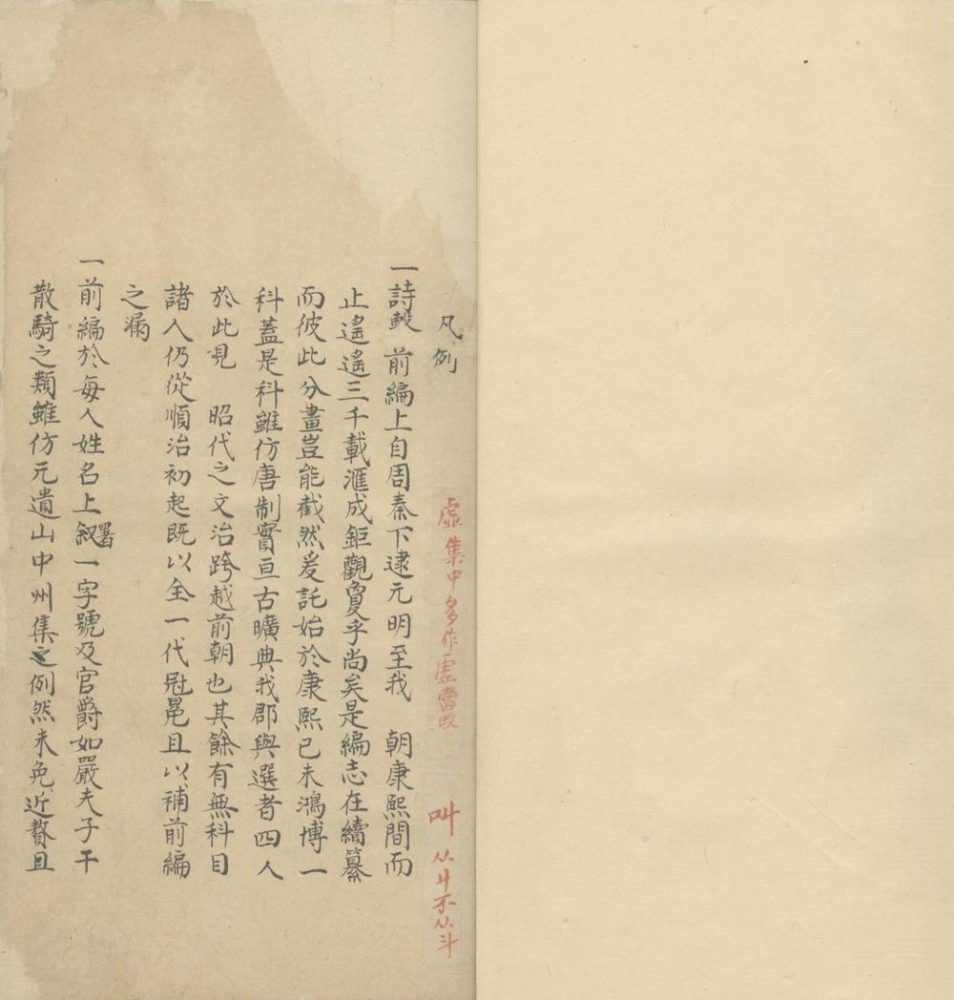 凡例
虛集中多作虗當改
叫 从丩不从斗
一詩觳 前編上自周秦下逮元明至我 朝康熙間而
止遙遙三千載滙成鉅觀敻乎尚矣是編志在續纂
而彼此分畫豈能截然爰託始於康熙己未鴻博一
科蓋是科雖仿唐制實亘古曠典我郡與選者四人
於此見 昭代之文治跨越前朝也其餘有無科目
諸人仍從順治初起既以全一代冠冕且以補前編
之漏
一前編於每人姓名上敘署一字號及官爵如嚴夫子干
散騎之類雖仿元遺山中州集之例然未免近贅且